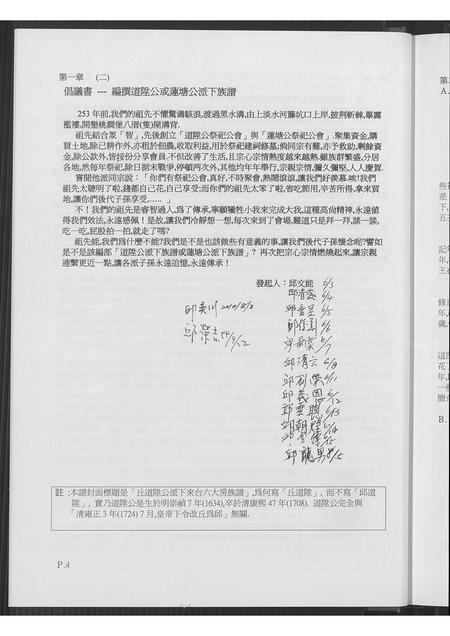 第一章　(二)
倡議書 --- 編撰道陞公或蓮塘公派下族譜
253 年前,我們的祖先不懼驚濤駭浪,渡過黑水溝,由上淡水河籐坑口上岸,披荆斬棘,蓽露
襤褸,開墾桃澗堡八厝(隻)屋溝背.
祖先結合眾「智」,先後創立「道陞公祭祀公會」與「蓮塘公祭祀公會」.聚集資金,購
買土地,除己耕作外,亦租於佃農,收取利益,用於祭祀建祠修墓;倘同宗有難,亦予救助,剩餘資
金,除公款外,皆按份分享會員.不但改善了生活,且宗心宗情熱度越來越熱.雖族群繁盛,分居
各地,然每年祭祀,除日據末戰爭,停頓两次外,其他均年年舉行,宗親宗情,彌久彌堅,人人慶賀.
嘗聞他派同宗說:「你們有祭祀公會,真好.不時聚會,熱鬧滾滾,讓我們好羨慕.唉!我們
祖先太聰明了啦,錢都自己花,自己享受;而你們的祖先太笨了啦,省吃節用,辛苦所得,拿來買
地,讓你們後代子孫享受,.....」
不！我們的祖先是睿智過人,爲了傳承,寧願犧牲小我來完成大我,這種高尚精神,永遠值
得我們效法,永遠感佩！是故,讓我們冷靜想一想,每次來到了會場,難道只是拜一拜,談一談,
吃一吃,屁股拍一拍,就走了嗎?
祖先能,我們爲什麼不能?我們是不是也該做些有意義的事,讓我們後代子孫懷念呢?譬如
是不是該編部「道陞公派下族譜或蓮塘公派下族譜」? 再次把宗心宗情燃燒起來,讓宗親
連繫更近一點,讓各派子孫永遠追憶,永遠傳承!
發起人: 邱文能 6/3
6/4
6/5
6/6
6/7
邱清六 6/8
6/11
邱義恩 6/12
6/13
邱朝 6/14
6/15
邱龍男 6/15
邱 2010/8/8
邱榮吉
註：本譜封面標題是「丘道陞公派下來台六大房族譜」,爲何寫「丘道陞」, 而不寫「邱道
陞」, 實乃道陞公是生於明崇禎 7 年(1634),卒於清康熙 47 年(1708). 道陞公完全與
「清雍正 3 年(1724) 7 月,皇帝下令改丘爲邱」無關.
P.4